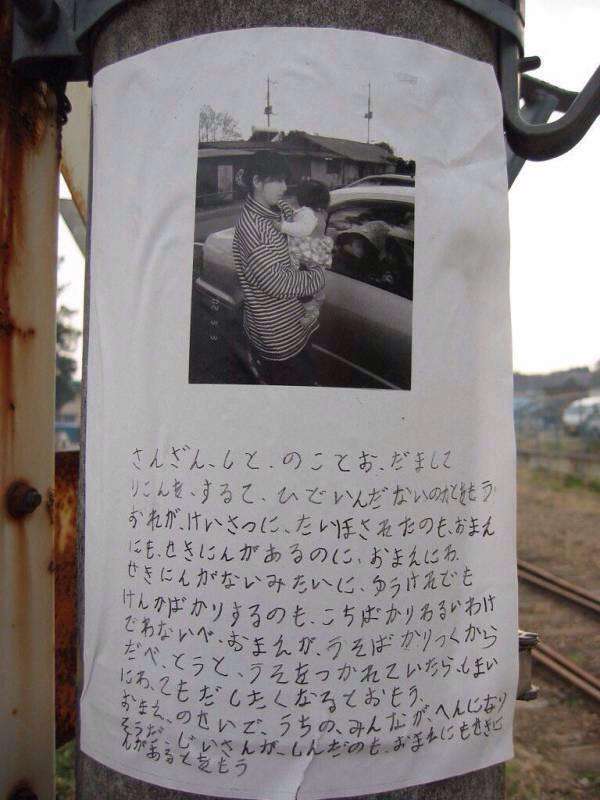 さんざん、しと、のことお、だまして
りこんを、するて、ひでいんだないのかとをもう
おれが、けいさつに、たいほされたのも、おまえ
にも、せきにんがあるのに、おまえにわ、
せきにんがないみたいに、ゆうけれでも
けんかばかりするのも、こちばかりわるいわけ
でわないべ、おまえが、うそばかりつくから
だべ、とうと、うそをつかれていたら、しまい
にわ、てもだしたくなるとおもう、
おまえ、のせいで、うちの、みんなが、へんになり
そうだ、じいさんが、しんだのも、おまえにもせきに
んがあるとをもう